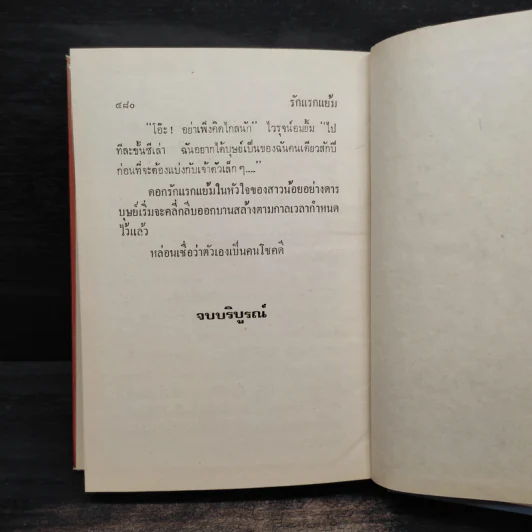 ๔๘๐ รักแรกแย้ม
"โอ๊ะ! อย่าเพิ่งคิดไกลนัก" ไวรุจน์อมยิ้ม "ไป
ทีละขั้นซีเล่า ฉันอยากได้บุษย์เป็นของฉันคนเดียวสักปี
ก่อนที่จะต้องแบ่งกับเจ้าตัวเล็กๆ...."
ดอกรักแรกแย้มในหัวใจของสาวน้อยอย่างดาร
บุษย์เริ่มจะคลี่กลีบออกบานสล้างตามกาลเวลากำหนด
ไว้แล้ว
หล่อนเชื่อว่าตัวเองเป็นคนโชคดี
จบบริบูรณ์